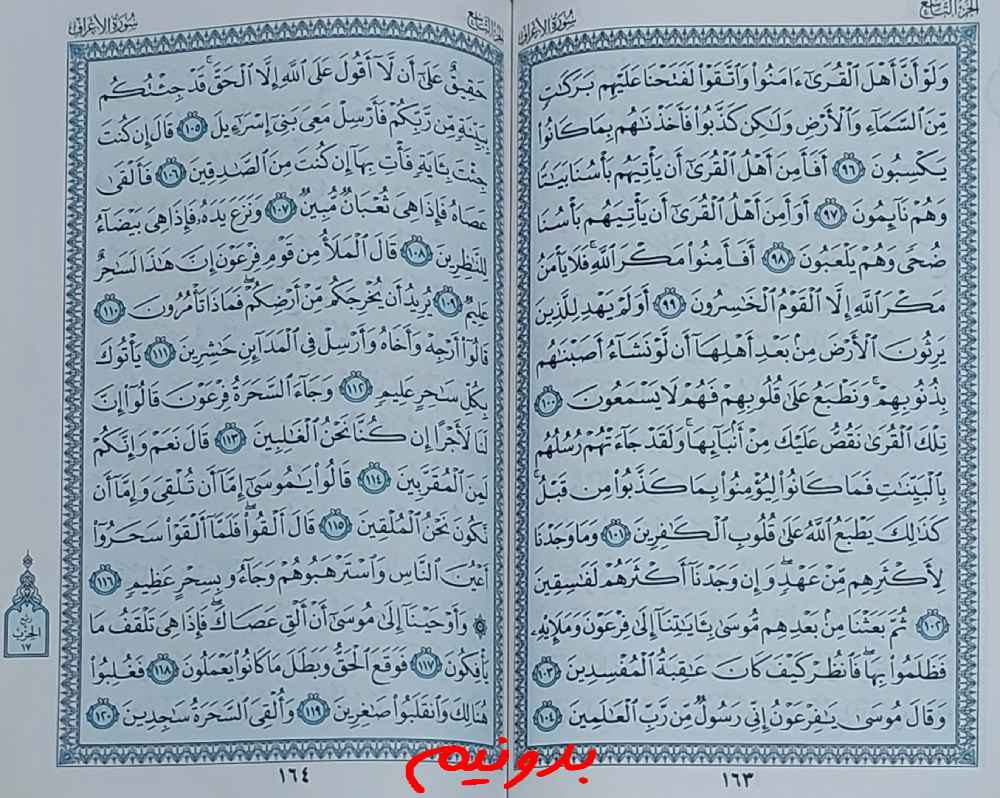 الجزء التاسع
سورة الأعراف
وَلَوْ أَنَّ أَهْلَ ٱلْقُرَىٰٓ ءَامَنُوا۟ وَٱتَّقَوْا۟ لَفَتَحْنَا عَلَيْهِم بَرَكَٰتٍ
مِّنَ ٱلسَّمَآءِ وَٱلْأَرْضِ وَلَٰكِن كَذَّبُوا۟ فَأَخَذْنَٰهُم بِمَا كَانُوا۟
يَكْسِبُونَ ٩٦ أَفَأَمِنَ أَهْلُ ٱلْقُرَىٰٓ أَن يَأْتِيَهُم بَأْسُنَا بَيَٰتًا
وَهُمْ نَآئِمُونَ ٩٧ أَوَأَمِنَ أَهْلُ ٱلْقُرَىٰٓ أَن يَأْتِيَهُم بَأْسُنَا
ضُحًى وَهُمْ يَلْعَبُونَ ٩٨ أَفَأَمِنُوا۟ مَكْرَ ٱللَّهِ ۚ فَلَا يَأْمَنُ
مَكْرَ ٱللَّهِ إِلَّا ٱلْقَوْمُ ٱلْخَٰسِرُونَ ٩٩ أَوَلَمْ يَهْدِ لِلَّذِينَ
يَرِثُونَ ٱلْأَرْضَ مِنۢ بَعْدِ أَهْلِهَآ أَن لَّوْ نَشَآءُ أَصَبْنَٰهُم
بِذُنُوبِهِمْ ۚ وَنَطْبَعُ عَلَىٰ قُلُوبِهِمْ فَهُمْ لَا يَسْمَعُونَ ١٠٠
تِلْكَ ٱلْقُرَىٰ نَقُصُّ عَلَيْكَ مِنْ أَنۢبَآئِهَا ۚ وَلَقَدْ جَآءَتْهُمْ رُسُلُهُم
بِٱلْبَيِّنَٰتِ فَمَا كَانُوا۟ لِيُؤْمِنُوا۟ بِمَا كَذَّبُوا۟ مِن قَبْلُ ۚ
كَذَٰلِكَ يَطْبَعُ ٱللَّهُ عَلَىٰ قُلُوبِ ٱلْكَٰفِرِينَ ١٠١ وَمَا وَجَدْنَا
لِأَكْثَرِهِم مِّنْ عَهْدٍ ۖ وَإِن وَجَدْنَآ أَكْثَرَهُمْ لَفَٰسِقِينَ
١٠٢ ثُمَّ بَعَثْنَا مِنۢ بَعْدِهِم مُّوسَىٰ بِـَٔايَٰتِنَآ إِلَىٰ فِرْعَوْنَ وَمَلَإِي۟هِۦ
فَظَلَمُوا۟ بِهَا ۖ فَٱنظُرْ كَيْفَ كَانَ عَٰقِبَةُ ٱلْمُفْسِدِينَ ١٠٣
وَقَالَ مُوسَىٰ يَٰفِرْعَوْنُ إِنِّى رَسُولٌ مِّن رَّبِّ ٱلْعَٰلَمِينَ ١٠٤
١٦٣
الجزء التاسع
سورة الأعراف
حَقِيقٌ عَلَىٰٓ أَن لَّآ أَقُولَ عَلَى ٱللَّهِ إِلَّا ٱلْحَقَّ ۚ قَدْ جِئْتُكُم
بِبَيِّنَةٍ مِّن رَّبِّكُمْ فَأَرْسِلْ مَعِىَ بَنِىٓ إِسْرَٰٓءِيلَ ١٠٥ قَالَ إِن كُنتَ
جِئْتَ بِـَٔايَةٍ فَأْتِ بِهَآ إِن كُنتَ مِنَ ٱلصَّٰدِقِينَ ١٠٦ فَأَلْقَىٰ
عَصَاهُ فَإِذَا هِىَ ثُعْبَانٌ مُّبِينٌ ١٠٧ وَنَزَعَ يَدَهُۥ فَإِذَا هِىَ بَيْضَآءُ
لِلنَّٰظِرِينَ ١٠٨ قَالَ ٱلْمَلَأُ مِن قَوْمِ فِرْعَوْنَ إِنَّ هَٰذَا لَسَٰحِرٌ
عَلِيمٌ ١٠٩ يُرِيدُ أَن يُخْرِجَكُم مِّنْ أَرْضِكُمْ ۖ فَمَاذَا تَأْمُرُونَ ١١٠
قَالُوٓا۟ أَرْجِهْ وَأَخَاهُ وَأَرْسِلْ فِى ٱلْمَدَآئِنِ حَٰشِرِينَ ١١١ يَأْتُوكَ
بِكُلِّ سَٰحِرٍ عَلِيمٍ ١١٢ وَجَآءَ ٱلسَّحَرَةُ فِرْعَوْنَ قَالُوٓا۟ إِنَّ
لَنَا لَأَجْرًا إِن كُنَّا نَحْنُ ٱلْغَٰلِبِينَ ١١٣ قَالَ نَعَمْ وَإِنَّكُمْ
لَمِنَ ٱلْمُقَرَّبِينَ ١١٤ قَالُوا۟ يَٰمُوسَىٰٓ إِمَّآ أَن تُلْقِىَ وَإِمَّآ أَن
نَّكُونَ نَحْنُ ٱلْمُلْقِينَ ١١٥ قَالَ أَلْقُوا۟ ۖ فَلَمَّآ أَلْقَوْا۟ سَحَرُوٓا۟
أَعْيُنَ ٱلنَّاسِ وَٱسْتَرْهَبُوهُمْ وَجَآءُو بِسِحْرٍ عَظِيمٍ ١١٦
۞ وَأَوْحَيْنَآ إِلَىٰ مُوسَىٰٓ أَنْ أَلْقِ عَصَاكَ ۖ فَإِذَا هِىَ تَلْقَفُ مَا
يَأْفِكُونَ ١١٧ فَوَقَعَ ٱلْحَقُّ وَبَطَلَ مَا كَانُوا۟ يَعْمَلُونَ ١١٨ فَغُلِبُوا۟
هُنَالِكَ وَٱنقَلَبُوا۟ صَٰغِرِينَ ١١٩ وَأُلْقِىَ ٱلسَّحَرَةُ سَٰجِدِينَ ١٢٠
ربع
الحزب
١٧
١٦٤
بدونيم